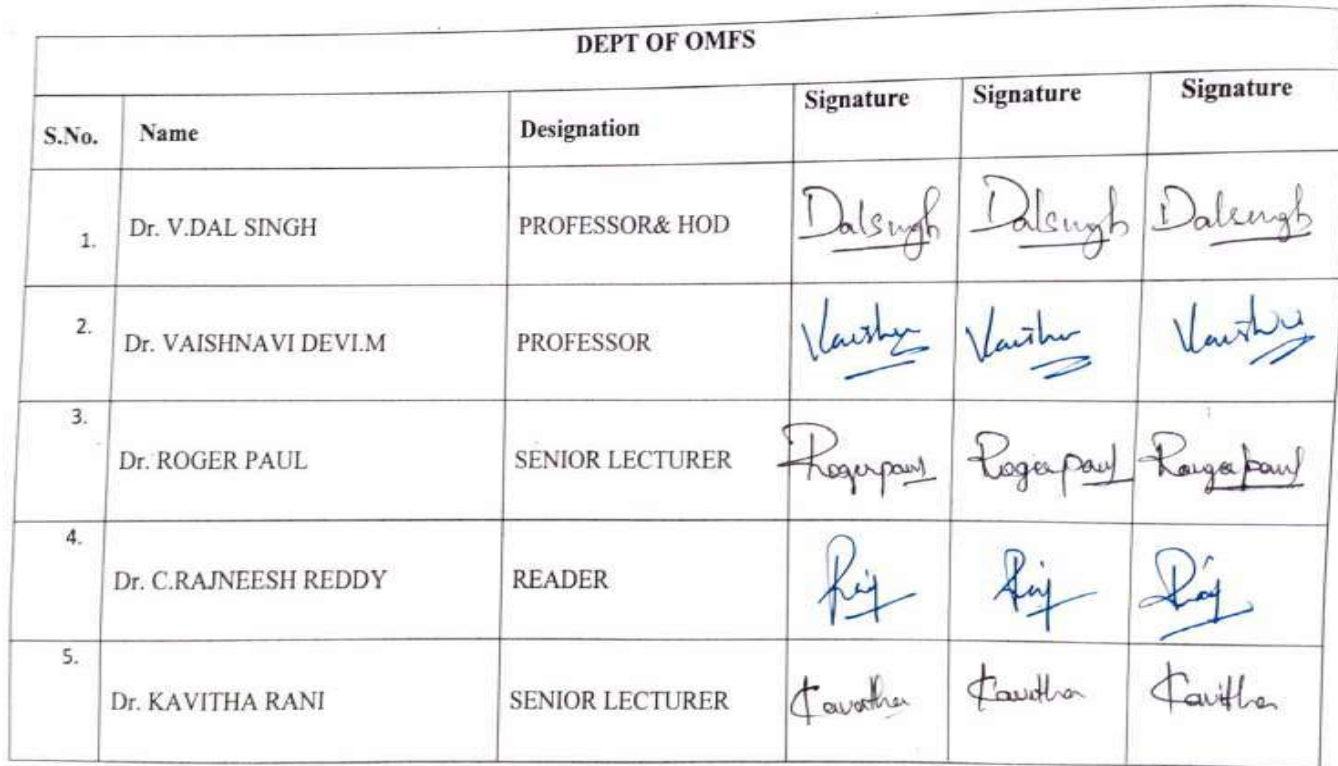 DEPT OF OMFS
S.No. Name Designation Signature Signature Signature
1. Dr. V.DAL SINGH PROFESSOR& HOD Dalsingh Dalsingh Dalsingh
2. Dr. VAISHNAVI DEVI.M PROFESSOR
3. Dr. ROGER PAUL SENIOR LECTURER Rogerpaul Rogerpaul Rogerpaul
4. Dr. C.RAJNEESH REDDY READER Raj Raj Raj
5. Dr. KAVITHA RANI SENIOR LECTURER Kavitha Kavitha Kavitha